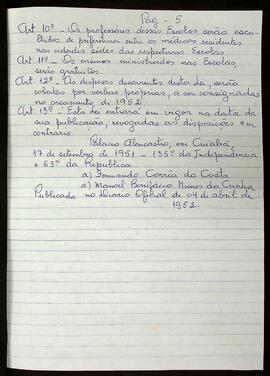 Pag - 5
Art 10º - Os professores dessas Escolas serão esco-
lhidos de preferência entre os médicos residentes
nas cidades sedes das respectivas Escolas.
Art 11º - Os ensinos ministrados nas Escolas,
serão gratuitos.
Art 12º - As despesas decorrentes desta lei, serão
cobertas por verbas próprias, a ser consignadas
no orçamento de 1952.
Art 13º - Esta lei entrará em vigor na data da
sua publicação, revogadas as disposições em
contrário.
Palacio Alencastro, em Cuiabá,
17 de setembro de 1951 - 135º da Independencia
e 63º da Republica.
a) Fernando Corrêa da Costa
a) Manoel Bonifácio Nunes da Cunha
Publicada no Diario Oficial de 04 de abril de
1952.